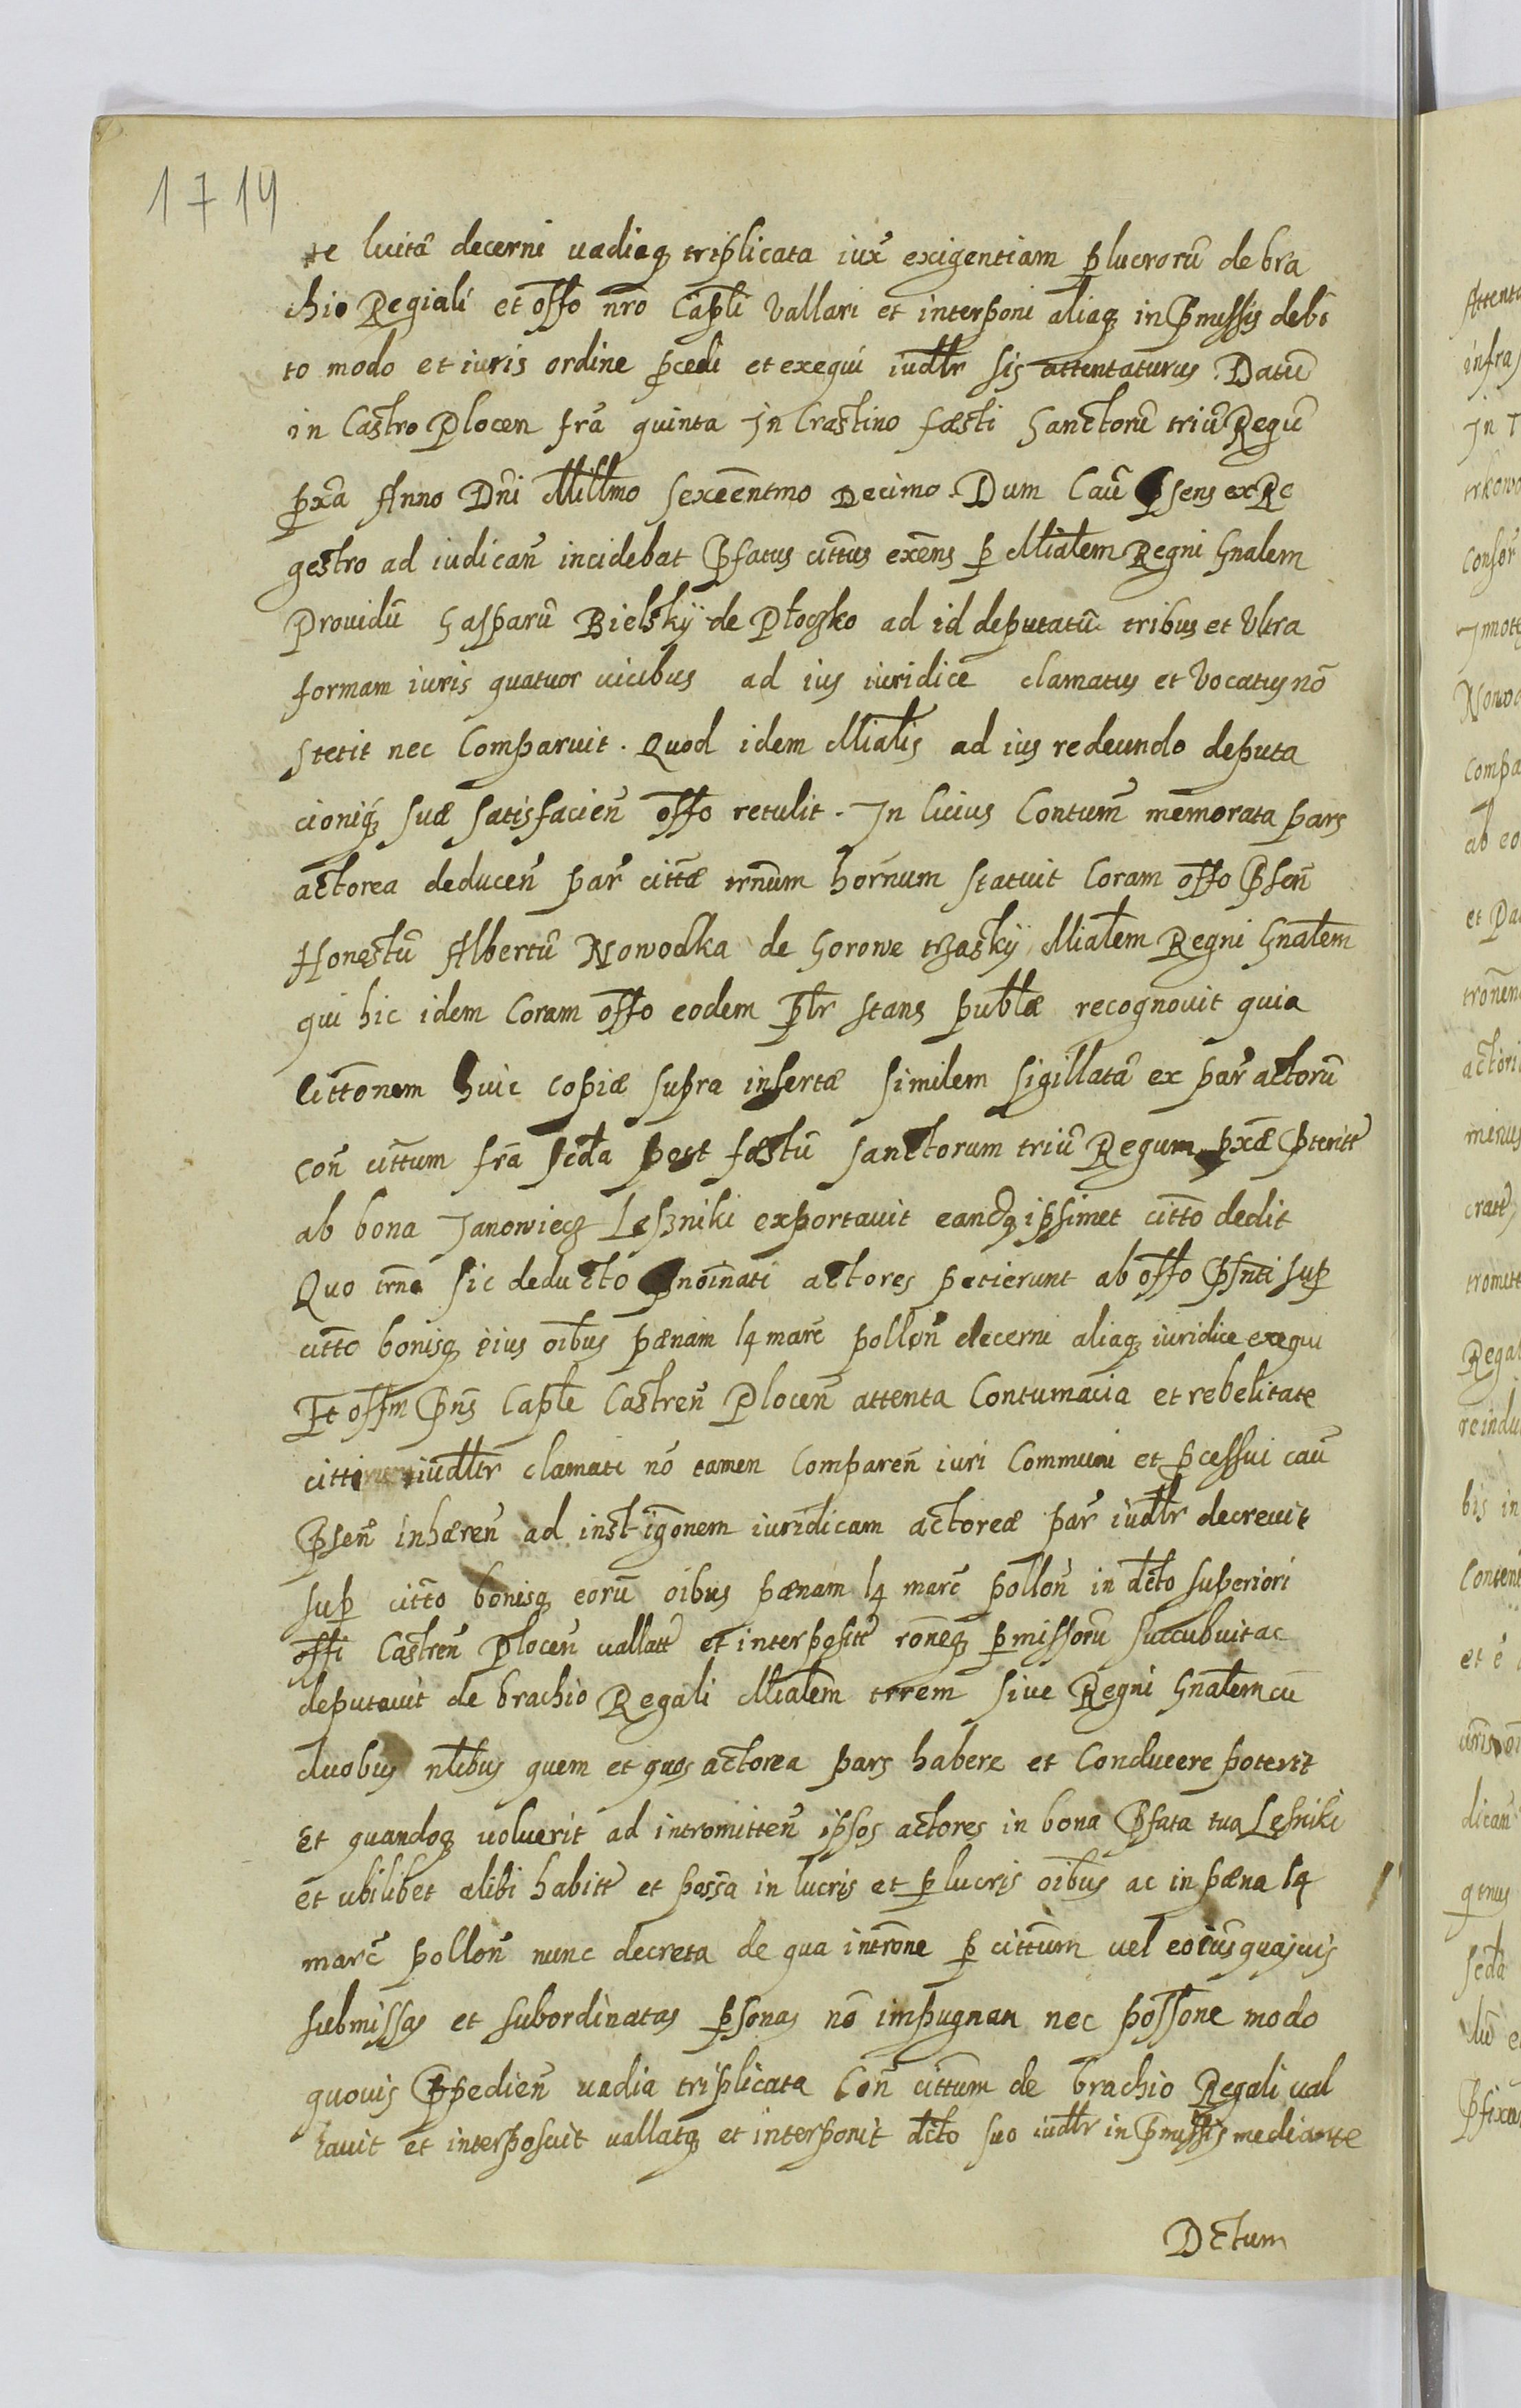 1714
te luitā decerni uadiaq̨ triplicata iux̄ exigentiam p̱lucrorū de bra
chio Regiali et offo nr̄o Capli Vallari et interponi aliaq̨ in P̱missis debi
to modo et iuris ordine p̱cedi et exequi iudlr sis attentaturus Datū
in Castro Plocen fr̄a quinta In Crastino fæsti Sanctorū triū Regū
p̱xa Anno Dn̄i Millmo sexcēntmo Decimo. Dum Caū P̱sens ex Re
gestro ad iudicañ incidebat P̱fatus cittus exēns p̱ Mialem Regni Gnalem
Prouidū Gasparū Bielskÿ de Płoczko ad id deputatū tribus et Vltra
formam iuris quatuor uicibus ad ius iuridice clamatus et Vocatus nō
stetit nec Comparuit. Quod idem Mialis ad ius redeundo deputa
cioniq̨ suæ satisfacieñ offo retulit. In Cuius Contum̄ memorata pars
actorea deduceñ par̄ cittæ trnum hornum statuit Coram offo P̱señ
Honestū Albertū Nowodka de Gorowe trzaskÿ Mialem Regni Gnalem
qui hic idem Coram offo eodem p̱lr stans publæ recognouit quia
Cittonem huic copiæ supra insertæ similem sigillatā ex par̄ actorū
Coñ cittum fr̄a scda post fæstū sanctorum triū Regum p̱xæ P̱teritt
ab bona Janowięcz Leszniki exportauit eandq̨ ipsimet citto dedit
Quo trno sic deducto P̱noīnati actores petierunt ab offo P̱snti sup̱
citto bonisq̨ eius oibus pænam 14 marc̄ polloñ decerni aliaq̨ iuridice exequi
Et offm P̱ns Caple Castreñ Ploceñ attenta Contumacia et rebelitate
citti iudlr clamati nō tamen Compareñ iuri Communi et p̱cessui cau̇
P̱señ inhæreñ ad instigōnem iuridicam actoreæ par̄ iudlr decreuit
sup̱ citto bonisq̨ eorū oibus pænam 14 marc̄ polloñ in dcto superiori
offi Castreñ Ploceñ vallatt et interpositt ronēq̨ p̱missorū succubuit ac
deputauit de brachio Regali Mialem trrem siue Regni Gnalem cū
duobus nlibus quem et quos actorea pars habere et Conducere poterit
Et quandoq̨ uoluerit ad intromitteñ ipsos actores in bona P̱fata tua Lesniki
et ubilibet alibi habitt et possa in lucris et p̱lucris oibus ac in pæna 14
marc̄ polloñ nunc decreta de qua introne p̱ cittum uel eoius quasuis
submissas et subordinatas p̱sonas nō impugnan nec possone modo
quouis P̱pedieñ uadia triplicata Coñ cittum de brachio Regali ual
lauit et interposuit uallatq̨ et interponit dcto suo iudlr in P̱missis mediante
Dctum